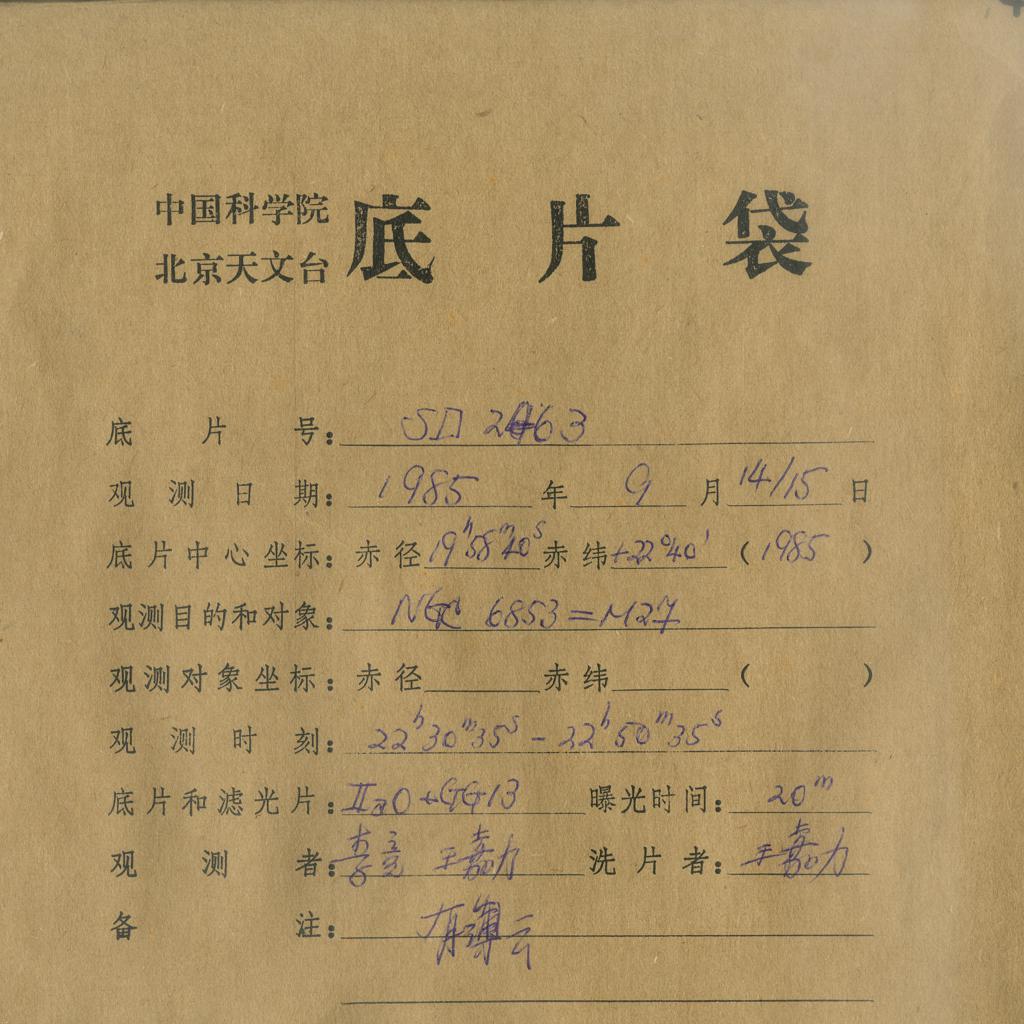 中国科学院
北京天文台
底片袋
底片号：SD 2463
观测日期：1985年9月14/15日
底片中心坐标：赤径19h58m40s赤纬+22°40′（1985）
观测目的和对象：NGC 6853=M27
观测对象坐标：赤径 赤纬 （ ）
观测时刻：22h30m35s-22h50m35s
底片和滤光片：IIaO+GG13 曝光时间：20m
观测者：李竞 王嘉力 洗片者：王嘉力
备注：有薄云